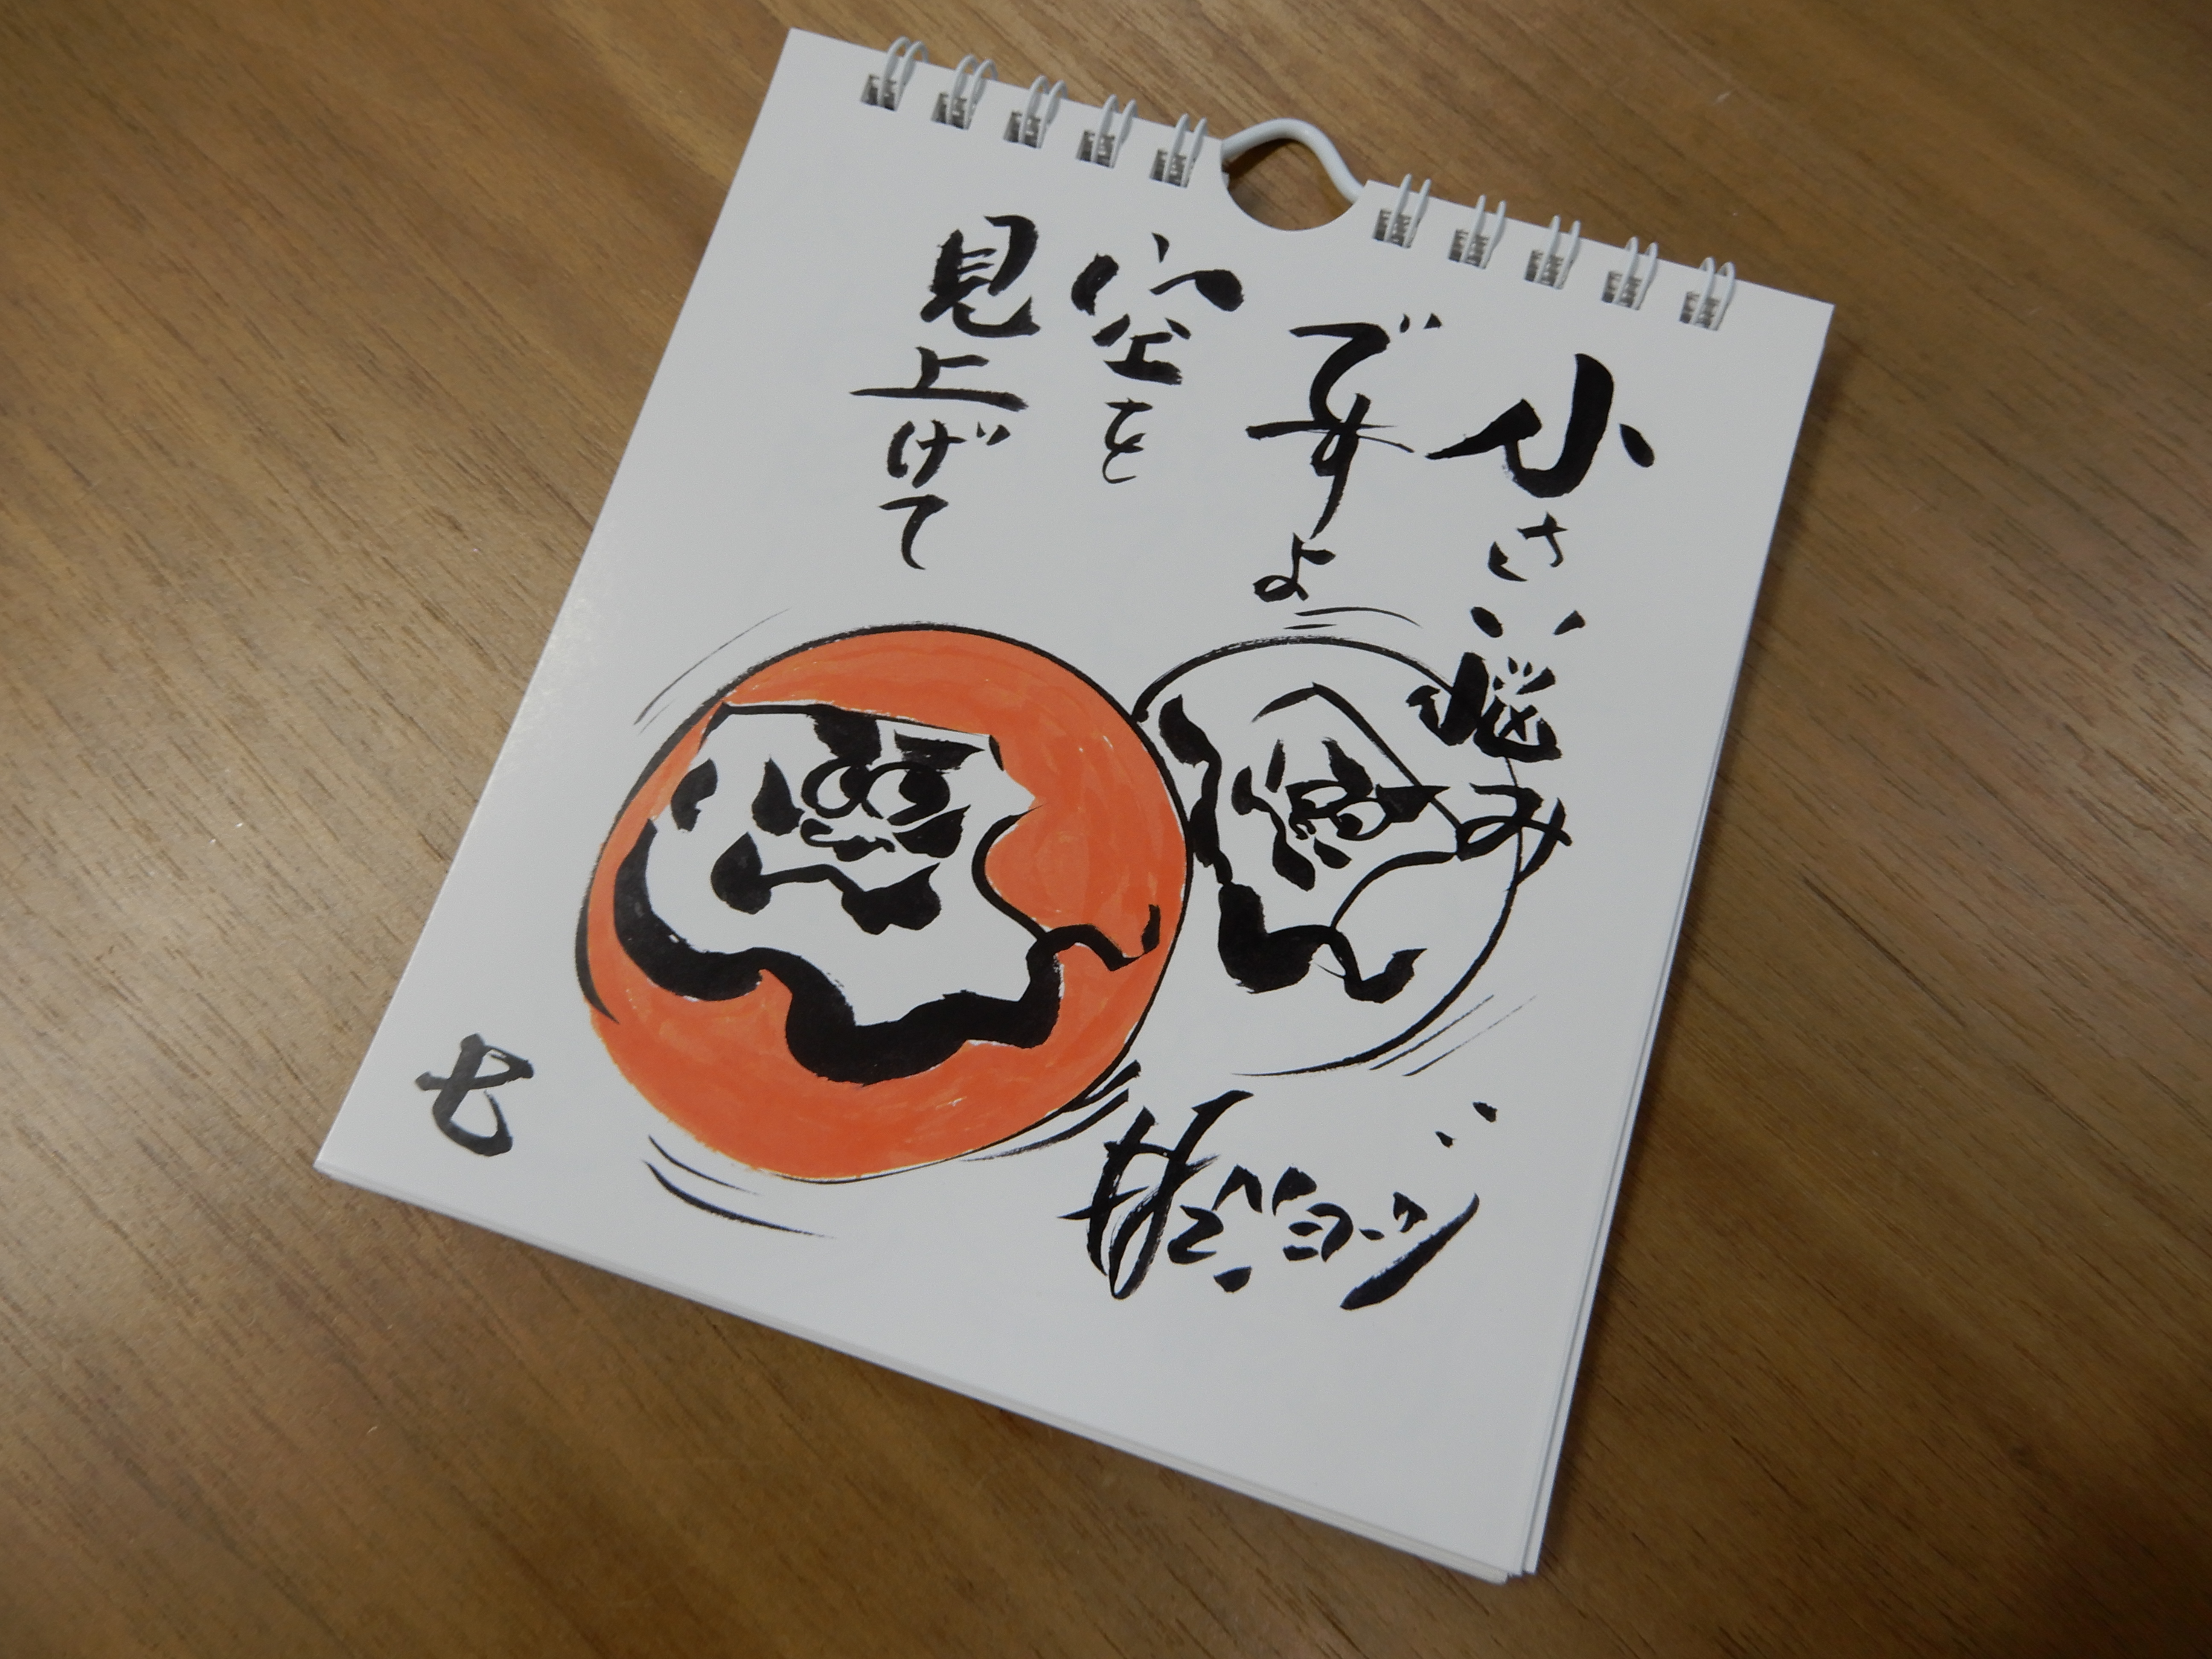 小さい悩み
ですよ
空を
見上げて
七